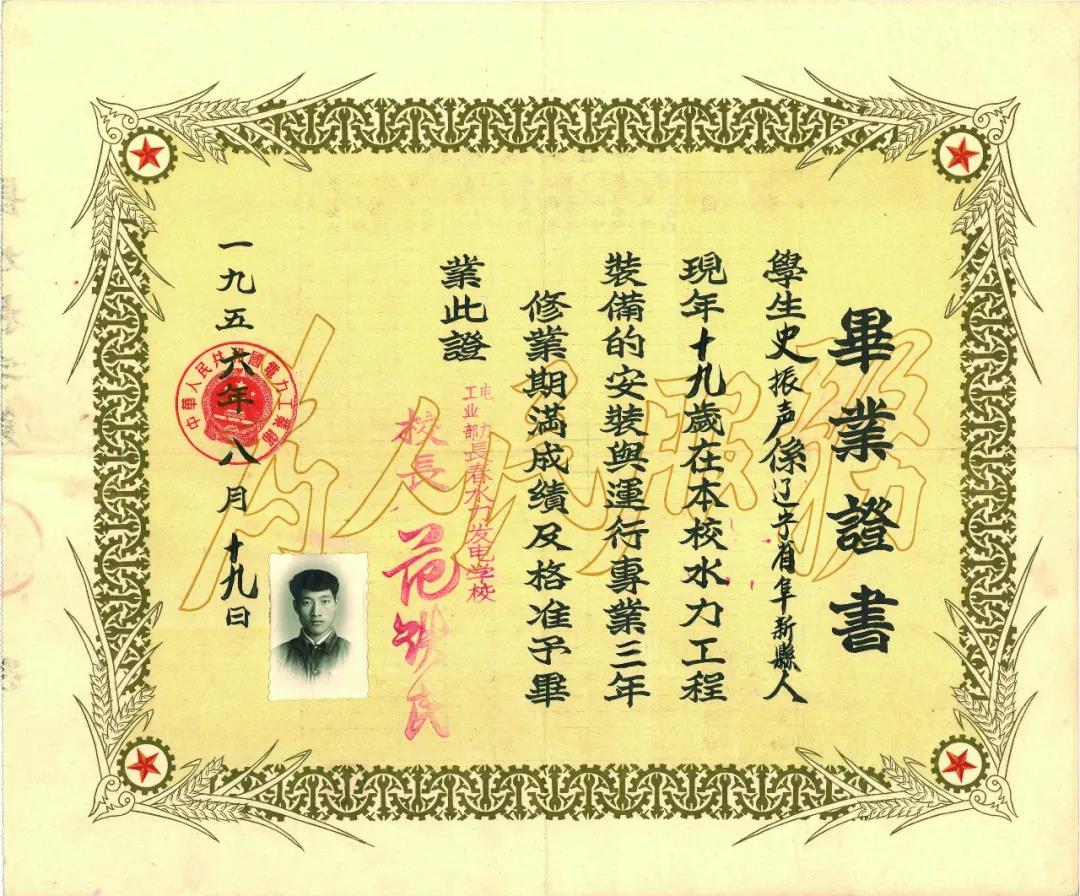 畢業證書
學生史振声係辽宁省阜新縣人
現年十九歲在本校水力工程
裝備的安裝與運行專業三年
修業期滿成績及格准予畢
業此證
电力
工业部長春水力发电学校
校長 范民
一九五六年八月十九日
中華人民共和國電力工業部
为人民服務